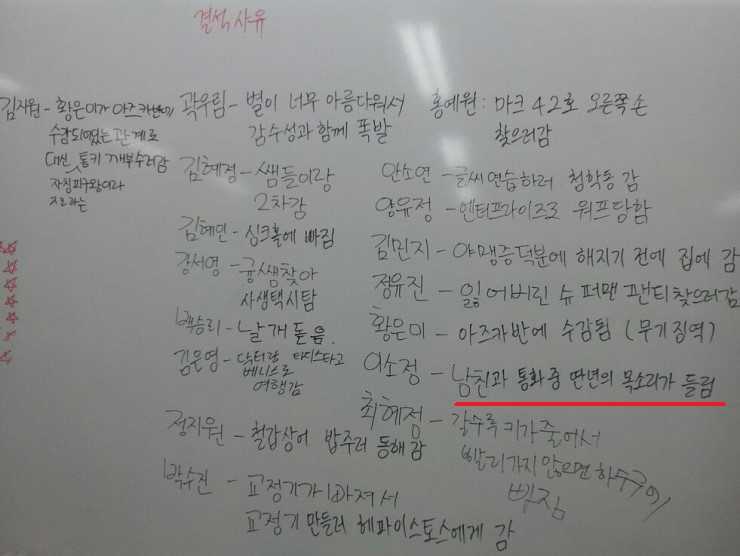 결석사유
김지원 - 황은미가 아즈카반에
수감되어있는 관계로
대신 통키 깨부수러감
자칭 피구왕이라
곽우림 - 별이 너무 아름다워서
감수성과 함께 폭발
홍예원 : 마크 42호 오른쪽 손
찾으러감
김혜정 - 쌤들이랑
2차감
안소연 - 글씨연습하러 청학동 감
양유정 - 엔터프라이즈로 워프당함
김혜민 - 싱크홀에 빠짐
김민지 - 야맹증덕분에 해지기 전에 집에 감
강서영 - 궁쌤찾아
사생택시탐
정유진 - 잃어버린 슈퍼맨 팬티 찾으러감
백승리 - 날개 돋음
황은미 - 아즈카반에 수감됨 (무기징역)
김문영 - 닥터랑 타디스타고
베니스로
여행감
이소정 - 남친과 통화 중 딴년의 목소리가 들림
최혜정 - 갈수록 키가 줄어서
빨리가지 않으면 하수구에
빠짐
정지원 - 철갑상어 밥주러 동해 감
박수진 - 교정기가 빠져서
교정기 만들러 헤파이스토스에게 감